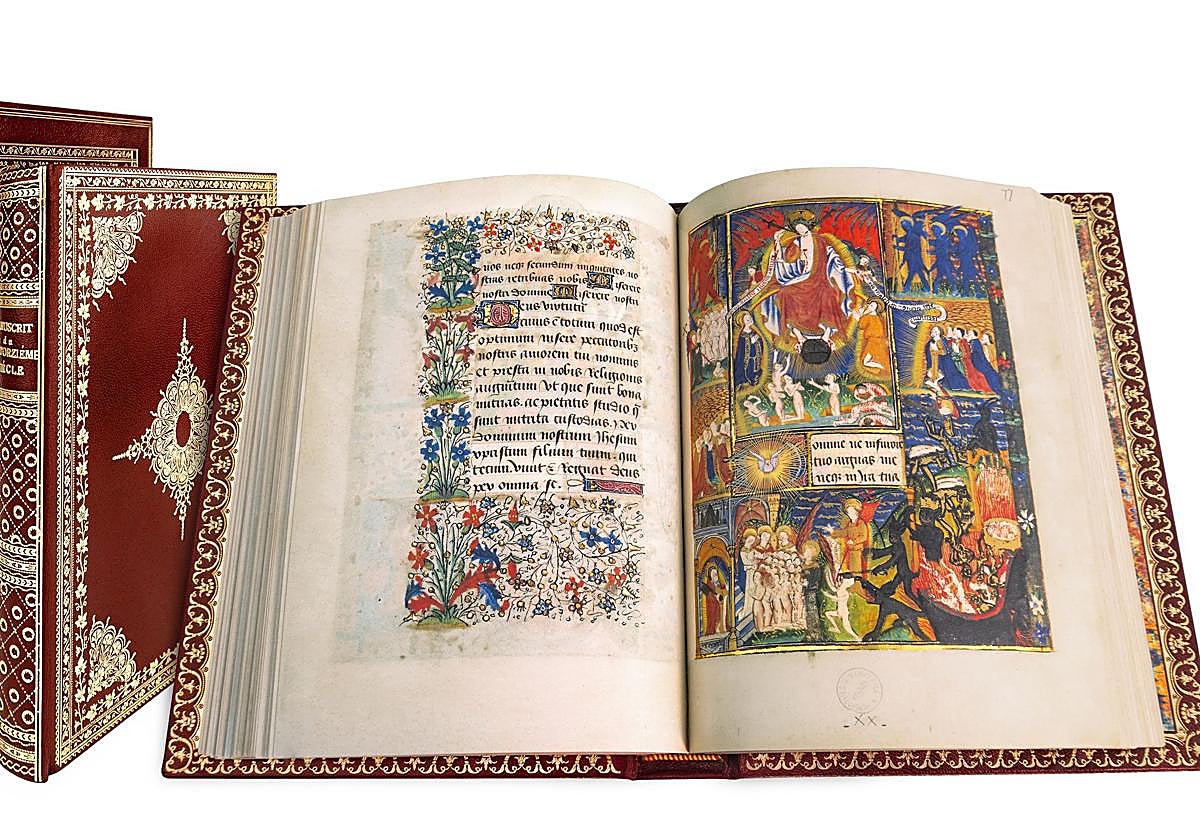 NUSCRIT
du
ORZIEME
IECLE
vos neq secundum iniquitates no
stras retribuas nobis iserere
nostri domine iserere nostri
Deus virtutū
cuius ē totum quod est
optimum insere pectoribȝ
nostris amorem tui nominis
et presta in nobis religionis
augmētum Ut que sunt bona
nutrias ac pietatis studio q
sunt nutrita custodias. Per
dominum nostrum Jhesum
xpristum filium tuum. qui
tecum vivit Et Regnat deus
per omnia se.
omine ne in furore
tuo arguas me
neqȝ in ira tua
77
-XX-